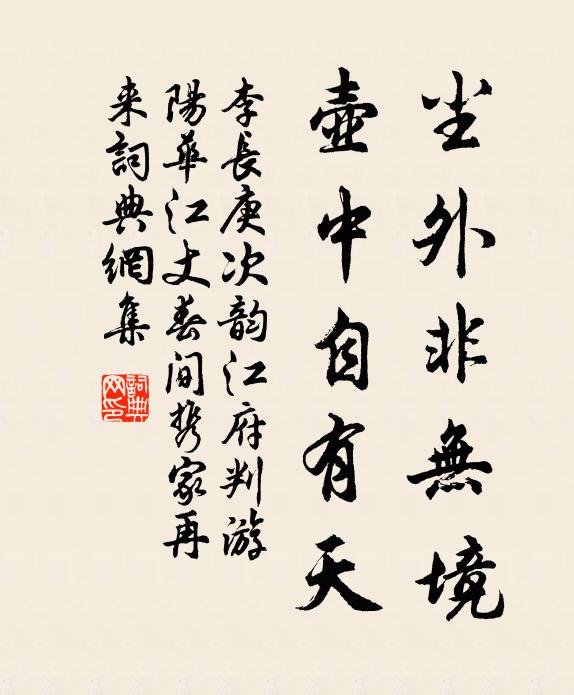 尘外非無境
壺中自有天
李長庚次韵江府判游
陽華江丈春间携家再
来詞典網集
詞典网印